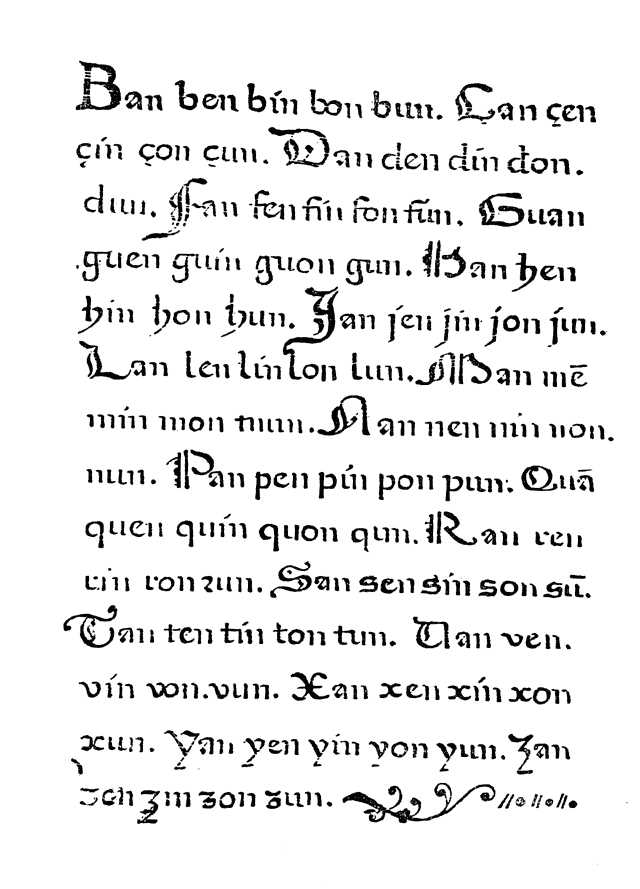 Ban ben bin bon bun. Can çen
çin çon çun. Dan den din don.
dun. Fan fen fin fon fun. Guan
guen guin guon gun. Han hen
hin hon hun. Jan jen jin jon jun.
Lan len lin lon lun. Man mē
min mon mun. Nan nen nin non.
nun. Pan pen pin pon pun. Quā
quen quin quon qun. Ran ren
rin ron run. San sen sin son sū.
Tan ten tin ton tun. Uan ven.
vin von. vun. Xan xen xin xon
xun. Yan yen yin yon yun. Zan
zen zin zon zun.